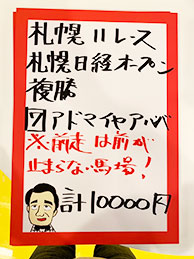 札幌11レース
札幌日経オープン
複勝
7アドマイヤアルバ
※前走は前が
止まらない馬場!
計10000円